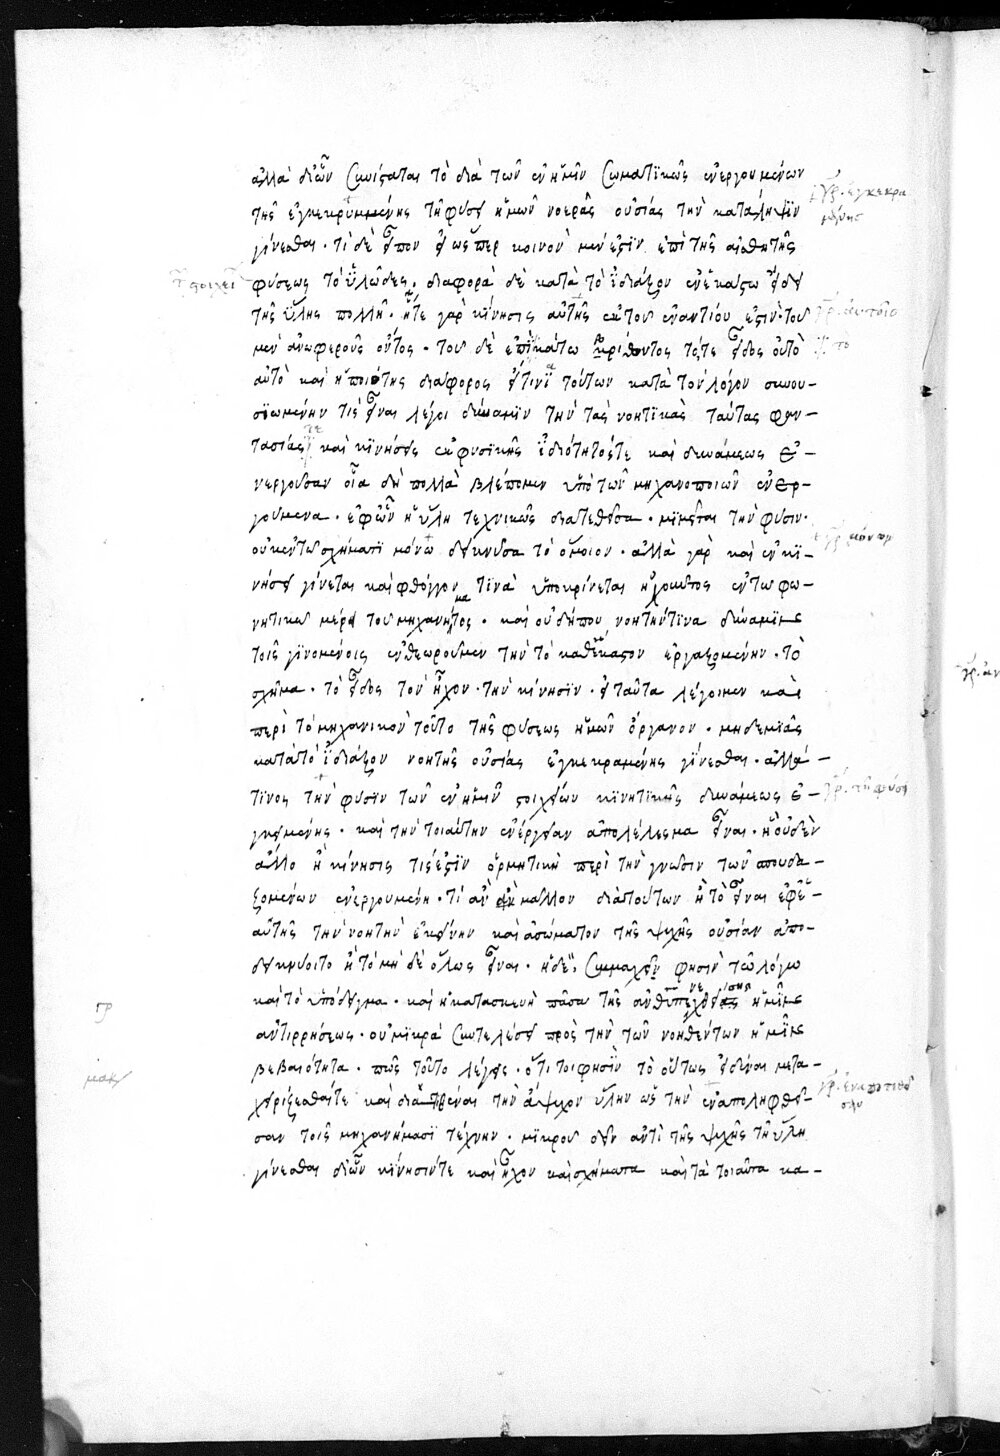 ἀλλὰ διὧν συνίσταται τὸ διὰ τῶν ἐν ἡμῖν σωματικῶς ἐνεργουμένων
τῆς ἐγκεκρυμμένης τῆ φύσει ἡμῶν νοερᾶς οὐσίας τὴν κατάληψϊν
γίνεσθαι · τί δὲ εἶπον εἰ ὥσπερ κοινὸν μέν ἐστϊν ἐπὶ τῆς αἰσθητῆς
φύσεως τὸ ὑλῶδες, διαφορὰ δὲ κατὰ τὸ ἰδιάζον ἐν ἑκάστω εἴδει
τῆς ὕλης πολλή · ἥτε γὰρ κίνησις αὐτῆς ἐκ τοῦ ἐναντίου ἐστὶν · τοῦ
μὲν ἀνωφεροῦς ὄντος · τοῦ δὲ ἐπὶ κάτω βρίθοντος τότε εἶδος οὐ τὸ
αὐτὸ καὶ ἡ ποιότης διάφορος εἴ τινϊ τούτων κατὰ τὸν λόγον συνου-
σϊωμένην τὶς εἶναι λέγοι δύναμϊν τὴν τὰς νοητϊκὰς ταύτας φαν-
τασίας καὶ κϊνήσεις ἐκ φυσϊκῆς ἰδιότητός τε καὶ δυνάμεως ἐ-
νεργοῦσαν οἷα δὴ πολλὰ βλέπομεν ὑπὸ τῶν μηχανοποιῶν ἐνερ-
γούμενα · ἐφ ὧν ἡ ὕλη τεχνικῶς διατεθεῖσα · μϊμεῖται τὴν φύσιν ·
οὐκ ἐν τῶ σχήματϊ μόνω δεικνῦσα τὸ ὅμοιον · ἀλλὰ γὰρ καὶ ἐν κϊ-
νήσει γίνεται καὶ φθόγγον τϊνὰ ὑποκρίνεται ἠχοῦντος ἐν τῶ φω-
νητικῶ μέρει τοῦ μηχανήματος · καὶ οὐ δήπου νοητήν τϊνα δύναμϊν
τοῖς γϊνομένοις ἐνθεωροῦμεν τὴν τὸ καθέκαστον ἐργαζομένην · τὸ
σχῆμα · τὸ εἶδος τὸν ἦχον · τὴν κίνησϊν · εἰ ταῦτα λέγοιμεν καὶ
περὶ τὸ μηχανικὸν τοῦτο τῆς φύσεως ἡμῶν ὄργανον · μηδεμιᾶς
κατὰ τὸ ἰδιάζον νοητῆς οὐσίας ἐγκεκραμένης γίνεσθαι · ἀλλά
τϊνος τὴν φύσϊν τῶν ἐν ἡμῖν στοιχείων κϊνητϊκῆς δυνάμεως ἐ-
γκειμένης · καὶ τὴν τοιαύτην ἐνέργειαν ἀποτέλεσμα εἶναι · ἢ οὐδὲν
ἄλλο ἢ κίνησις τίς ἐστϊν ὁρμητικὴ περὶ τὴν γνῶσιν τῶν σπουδα-
ζομένων ἐνεργουμένη · τί ἂν μᾶλλον διὰ τούτων ἢ τὸ εἶναι ἐφἑ-
αυτῆς τὴν νοητὴν ἐκείνην καὶ ἀσώματον τῆς ψυχῆς οὐσίαν ἀπο-
δεικνύοιτο ἢ τὸ μὴ δὲ ὅλως εἶναι · ἡ δέ, συμμαχεῖν φησὶν τῶ λόγω
καὶ τὸ ὑπόδειγμα · καὶ ἡ κατασκευὴ πᾶσα τῆς ἀνθυπενεχθείσης ἡμῖν
ἀντιρρήσεως · οὐ μϊκρὰ συντελέσει πρὸς τὴν τῶν νοηθέντων ἡμῖν
βεβαιότητα · πῶς τοῦτο λέγεις · ὅτι τοι φησὶν τὸ οὕτως εἰδέναι μετα-
χειρίζεσθαί τε καὶ διατιθέναι τὴν ἄψυχον ὕλην ὡς τὴν ἐναποληφθεῖ-
σαν τοῖς μηχανήμασϊ τέχνην · μϊκροῦ δεῖν ἀντὶ τῆς ψυχῆς τῆ ὕλη
γίνεσθαι διὧν κίνησίν τε καὶ ἦχον καὶ σχήματα καὶ τὰ τοιαῦτα κα-
γρ. ἐγκεκρα
μένης
γρ. τῆ φύσει